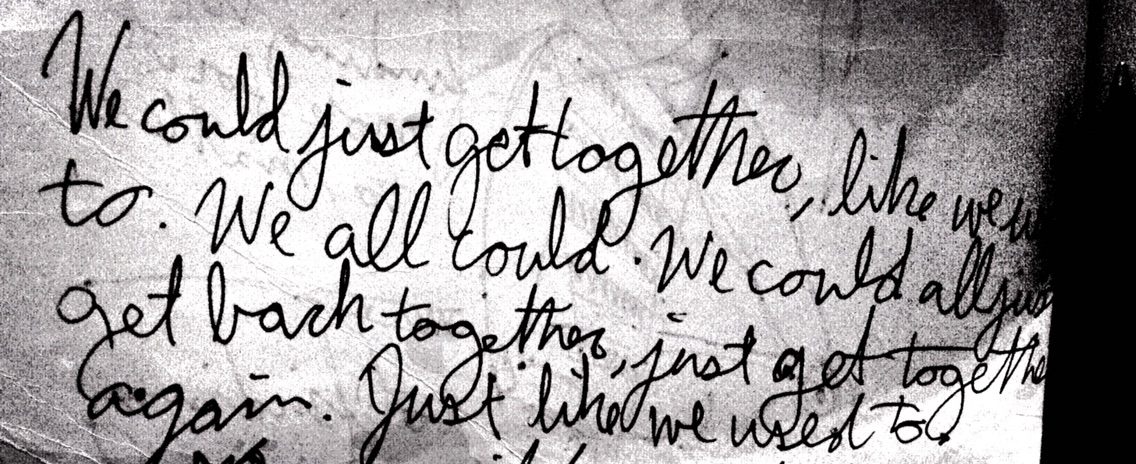 We could just get together, like we
to. We all could. We could all just
get back together, just get together
again. Just like we used to.